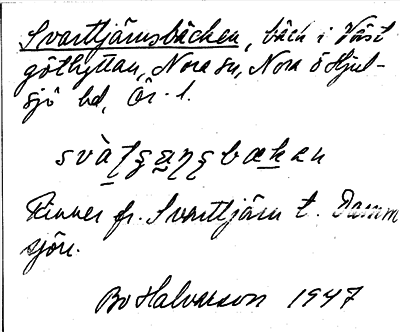 Svarttjärnsbäcken, bäck i Väst
göthyttan, Nora sn, Nora o Hjul-
sjö bd, Ör. l.
svàʈʂa̲ɳʂbæk̲an
Rinner fr. Svarttjärn t. Damm
sjön.
Bo Halvarson 1947